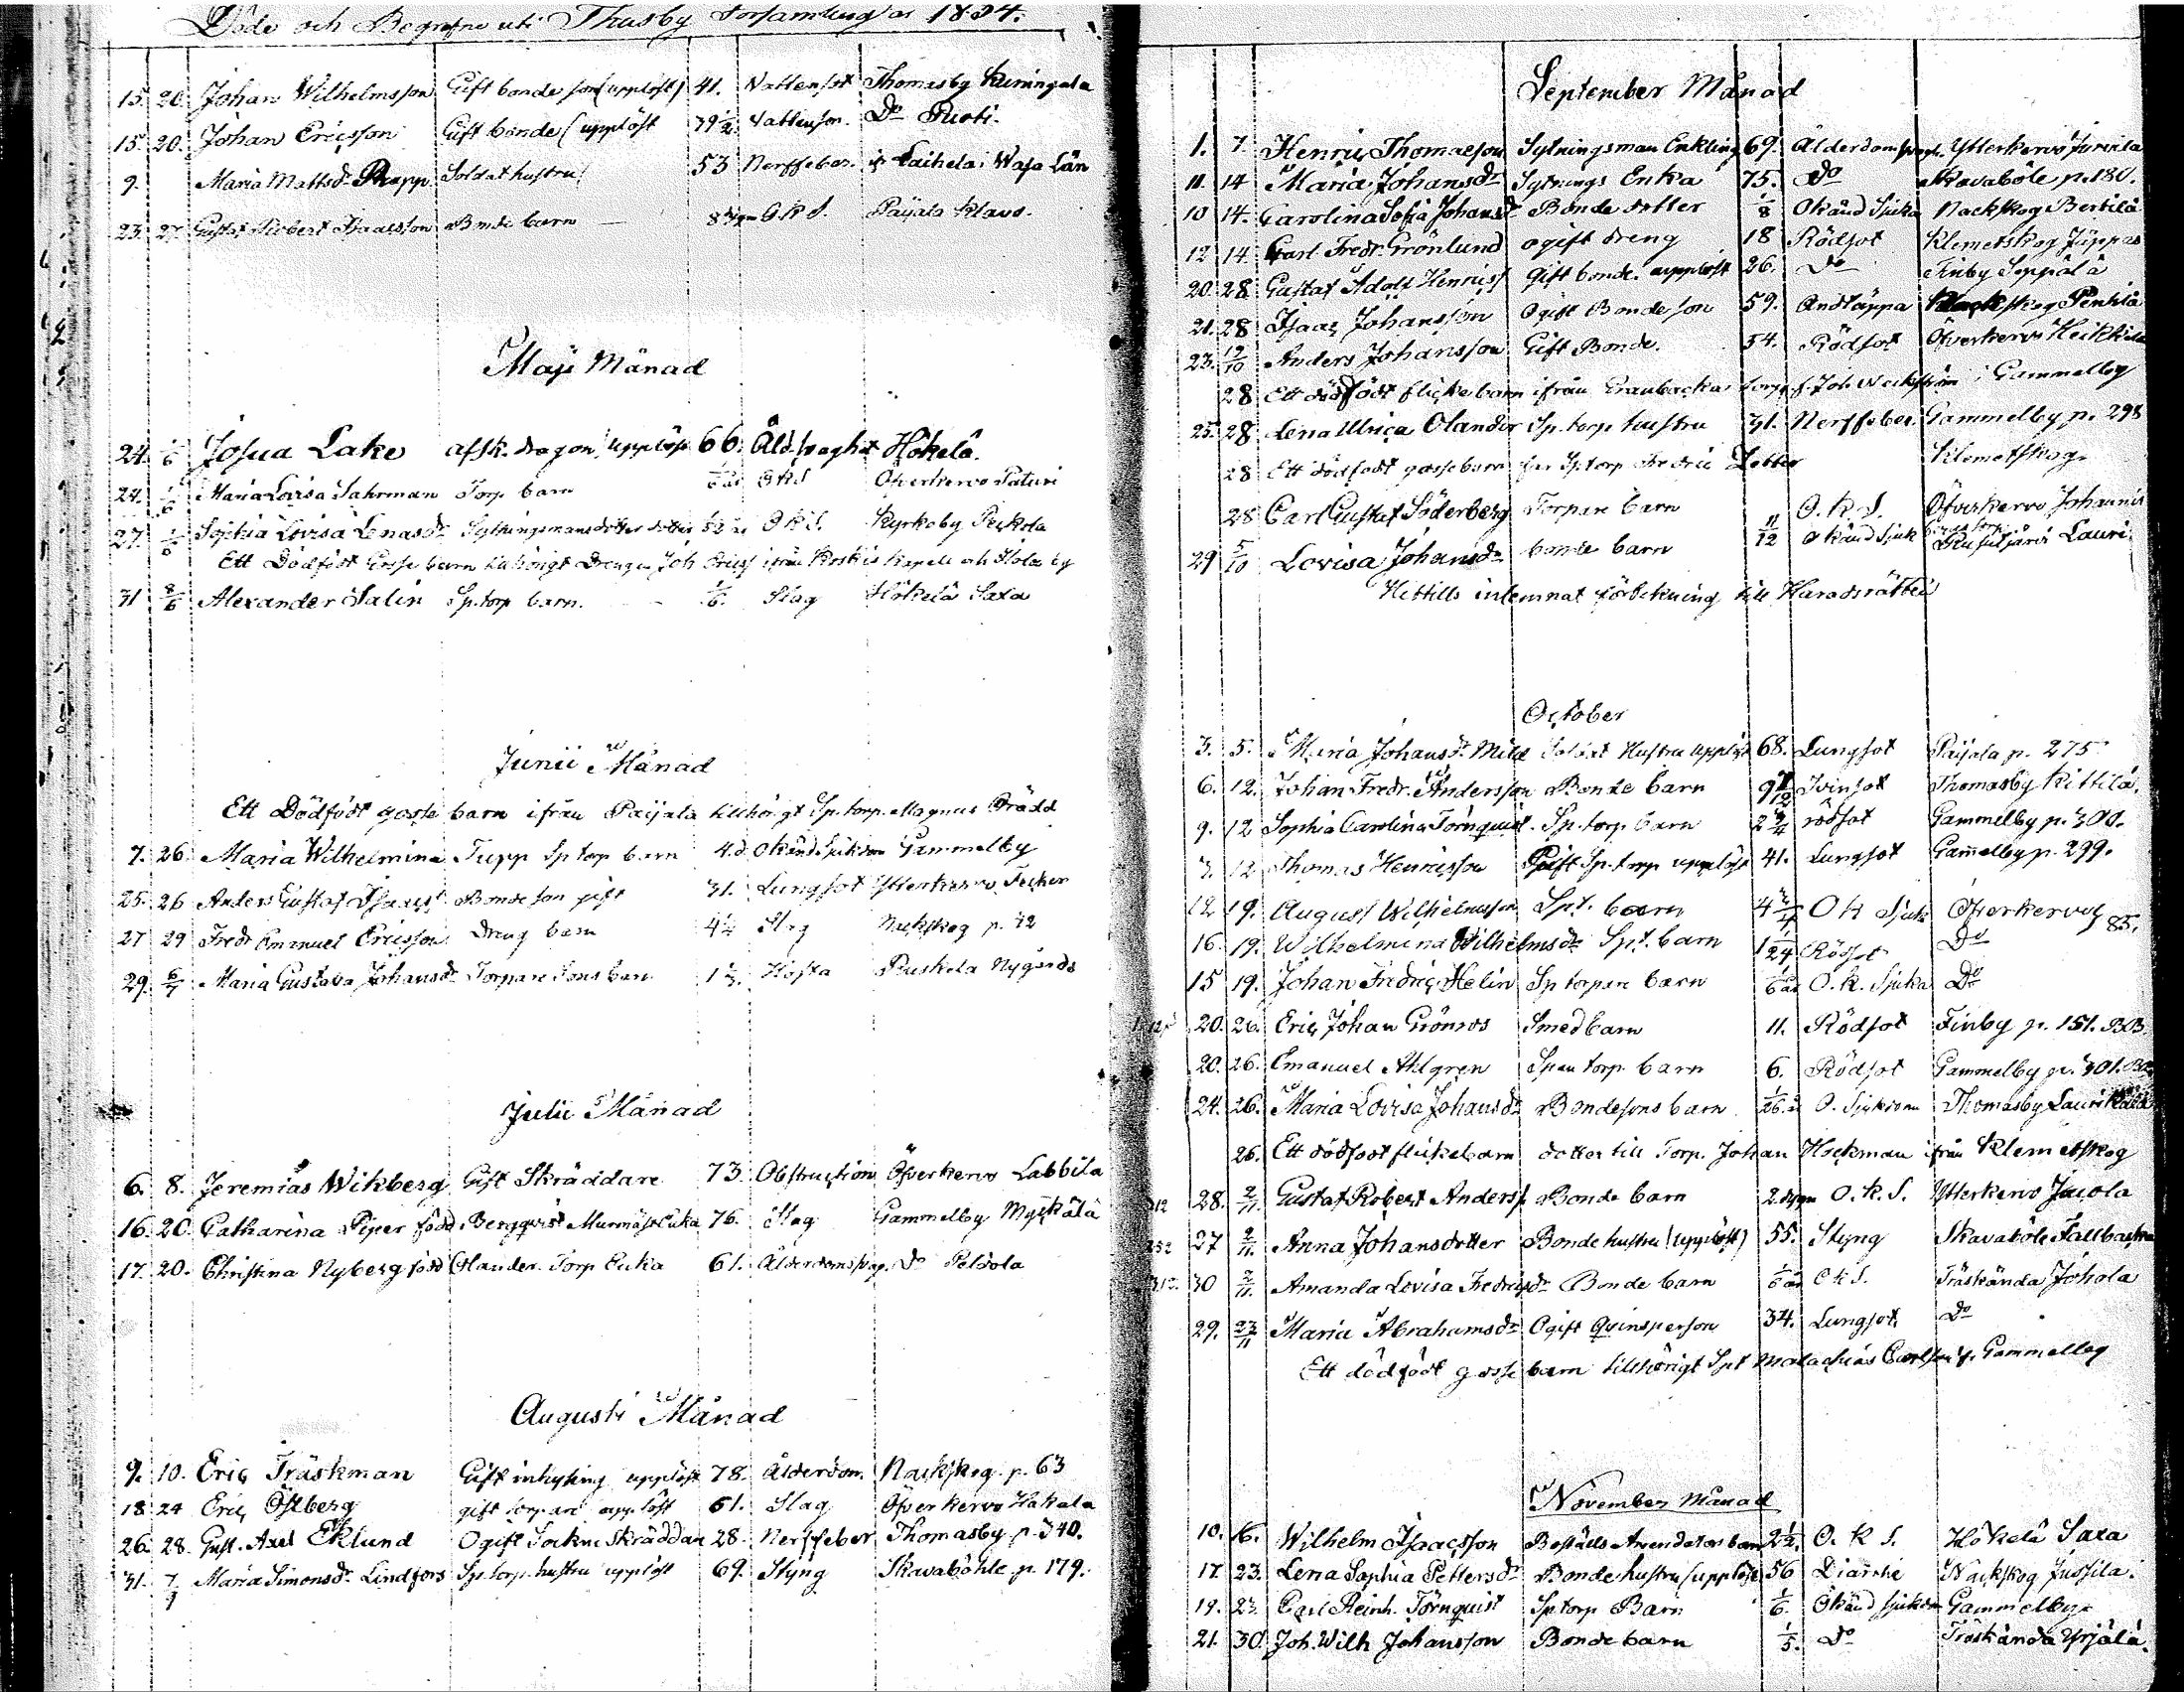 Döde och Begrafne uti Thusby Församling år 1834.
15. 20. Johan Wilhelmsson Gift bonde son (upplöst) 41. Vattensot Thomasby Kuningala
15. 20. Johan Ericsson Gift bonde (upplöst 39 1/2 Vattensot. Do
9. Maria Mattsdr Rapp Soldat hustru 53 Nerffeber. i Laihela i Wasa Län
23. 27. Gustaf Robert Isaacsson Bonde barn O.K.S. Paijala Klavs.
Maji Månad
24. 1/6 Josua Lake afsk. dragon, upplöst 66. Åld.svaghet Hökelä.
24. 1/6 Maria Lovisa Sahrman Torp barn 1/6 år OKS Öfverkervo Paturi
27. 1/6 Sophia Lovisa Lenasdr Sytningsmans dotter dotter OKS. Kyrkoby Peckola
Ett Dödfödt Gosse barn tillhörigt Drengen Joh Ericss ifrån Koskis Kapell och Hola by
31 8/6 Alexander Salin Sp.torp barn. 1/6. Slag Hökelä Saxa
Junii Månad
Ett Dödfödt gosse barn ifrån Paijala tillhörigt Sp.torp. Magnus Brädd
7. 26. Maria Wilhelmina Tupp Sp torp barn 4.d. Okänd Sjukdom Gammelby
25. 26 Anders Gustaf Isaacss Bondeson gift 31. Lungsot Ytterkervo
27 29 Fredr Emanuel Ericsson Dreng barn 4 1/4 Slag Nackskog p. 42
29. 6/7 Maria Gustava Johansdr Torpare Sons barn 1 1/3. Hosta Ruskela Nygårds
Julii Månad
6. 8. Jeremias Wikberg Gift Skräddare 73. Obstruction Öfverkervo Labbila
16. 20. Catharina Piper född Bergqvist Murmäst Enka 76. Slag Gammelby Myckälä
17. 20. Christina Nyberg född Olander. Torp Enka 61. Ålderdomsvag. Do Peldola
Augusti Månad
9. 10. Eric Träskman Gift inhysing upplöst 78. Ålderdom. Nackskog. p. 63
18 24 Eric Östberg gift torpare upplöst 61. Slag Öfverkervo Hakala
26. 28. Gust. Axel Eklund Ogift Sockne Skräddare 28. Nerffeber Thomasby p. 340.
31. 7/9 Maria Simonsdr Lindfors Sp.torp. hustru upplöst 69. Styng Skavaböhle p. 179.
September Månad
1. 7. Henric Thomasson Sytningsman Enkling 69. Ålderdomsvagh. Ytterkervo Jurvila
11. 14 Maria Johansdr Sytnings Enka 75. Do Skavaböle p. 180.
10 14. Carolina Sofia Johansdr Bonde dotter 1/8 Okänd Sjuka Nackskog Bertilä
12 14. Carl Fredr. Grönlund ogift dreng 18 Rödsot Klemetskog Jäppas
20. 28 Gustaf Adolf Henricss Gift bonde. upplöst 26. Do Finby Seppälä
21. 28 Isaac Johansson Ogift Bonde son 59. Andtäppa Nackskog Penttilä
23. 12/10 Anders Johansson Gift Bonde. 54. Rödsot Öfverkervo Heikkilä
28 Ett dödfödt flickebarn ifrån Granbacka torp f. Joh. Weckström i Gammelby
25. 28 Lena Ulrica Olander Sp. torp hustru 31. Nerffeber. Gammelby p. 298
28 Ett dödfödt gossebarn för Sp.torp Fredric Zetter Klemetskog.
28 Carl Gustaf Söderberg Torpare barn O.K.S. Öfverkervo Johannis
29 5/10 Lovisa Johansdr bonde barn 11/12 okänd Sjuk Rusutjärvi Lauri.
Hittills inlemnat förtekning till Häradsrätten
October
3. 5. Maria Johansdr Mild Soldat Hustru upplöst 68. Lungsot Paijala p. 275
6. 12. Johan Fredr. Andersson Bonde barn 9 7/12 Tvinsot Thomasby Kittilä.
9. 12 Sophia Carolina Törnquist. Sp.torp barn 2 3/4 rödsot Gammelby p. 300.
7. 12 Thomas Henricsson Gift Sp.torp upplöst 41. Lungsot Gam̄elby p. 299.
12 19. August Wilhelmsson Spt. barn 4 3/4 OK Sjuk Öfverkervo 85.
16. 19. Wilhelmina Wilhelmsdr Spt. barn 1 1/24 Rödsot Do
15 19. Johan Fredric Helin Sp torpare barn 1/6 år O.K. Sjuka Do
20. 26. Eric Johan Grönroos Smed barn 11. Rödsot Finby p. 151.
20. 26. Emanuel Ahlgren Span torp. barn 6. Rödsot Gammelby p. 301.
24. 26. Maria Lovisa Johansdr Bondesons barn 1/26.å O. Sjukdom Thomasby Laurikala
26. Ett dödfödt flickebarn dotter till Torp. Johan Höckman ifrån Klemetskog
28. 2/11 Gustaf Robert Anderss. Bonde barn 2. dygn O.K.S. Ytterkervo Jacola
27 2/11. Anna Johansdotter Bonde hustru (upplöst) 55. Styng Skavaböle Fallbacka
30 2/11. Amanda Lovisa Fredricsdr Bonde barn 1/6 år OKS. Träskända Johola
29. 23/11 Maria Abrahamsdr Ogift Qvinsperson 34. Lungsot. Do
Ett dödfödt gosse barn tillhörigt Spt Malachias Carlsson fr. Gammelby
November Månad
10. 16. Wilhelm Isaacsson Boställs Arrendators barn 2 1/2. O.K.S. Hökelä Saxa
17. 23. Lena Sophia Pettersdr Bonde hustru (upplöst 56 Diarrhé Nackskog Jussila.
19. 23. Carl Reinh. Törnquist Sp.torp Barn 1/6. Okänd sjukdom Gammelby
21. 30. Joh. Wilh Johansson Bonde barn 1/5. Do Träskända Yrjälä.